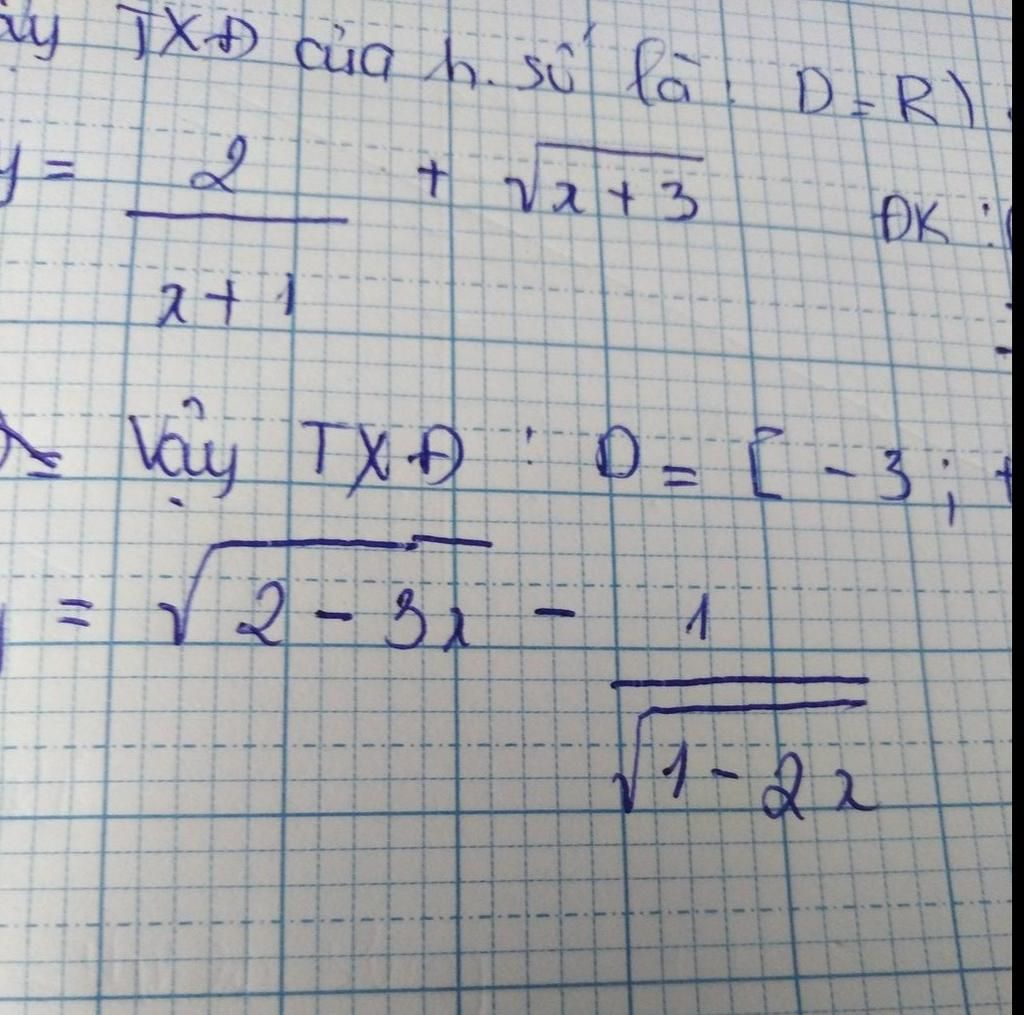 TXĐ của h. số là: D = R)
y = 2/(x + 1) + √(x + 3) ĐK :
Vậy TXĐ : D = [ - 3 ;
= √(2 - 3x) - 1/√(1 - 2x)